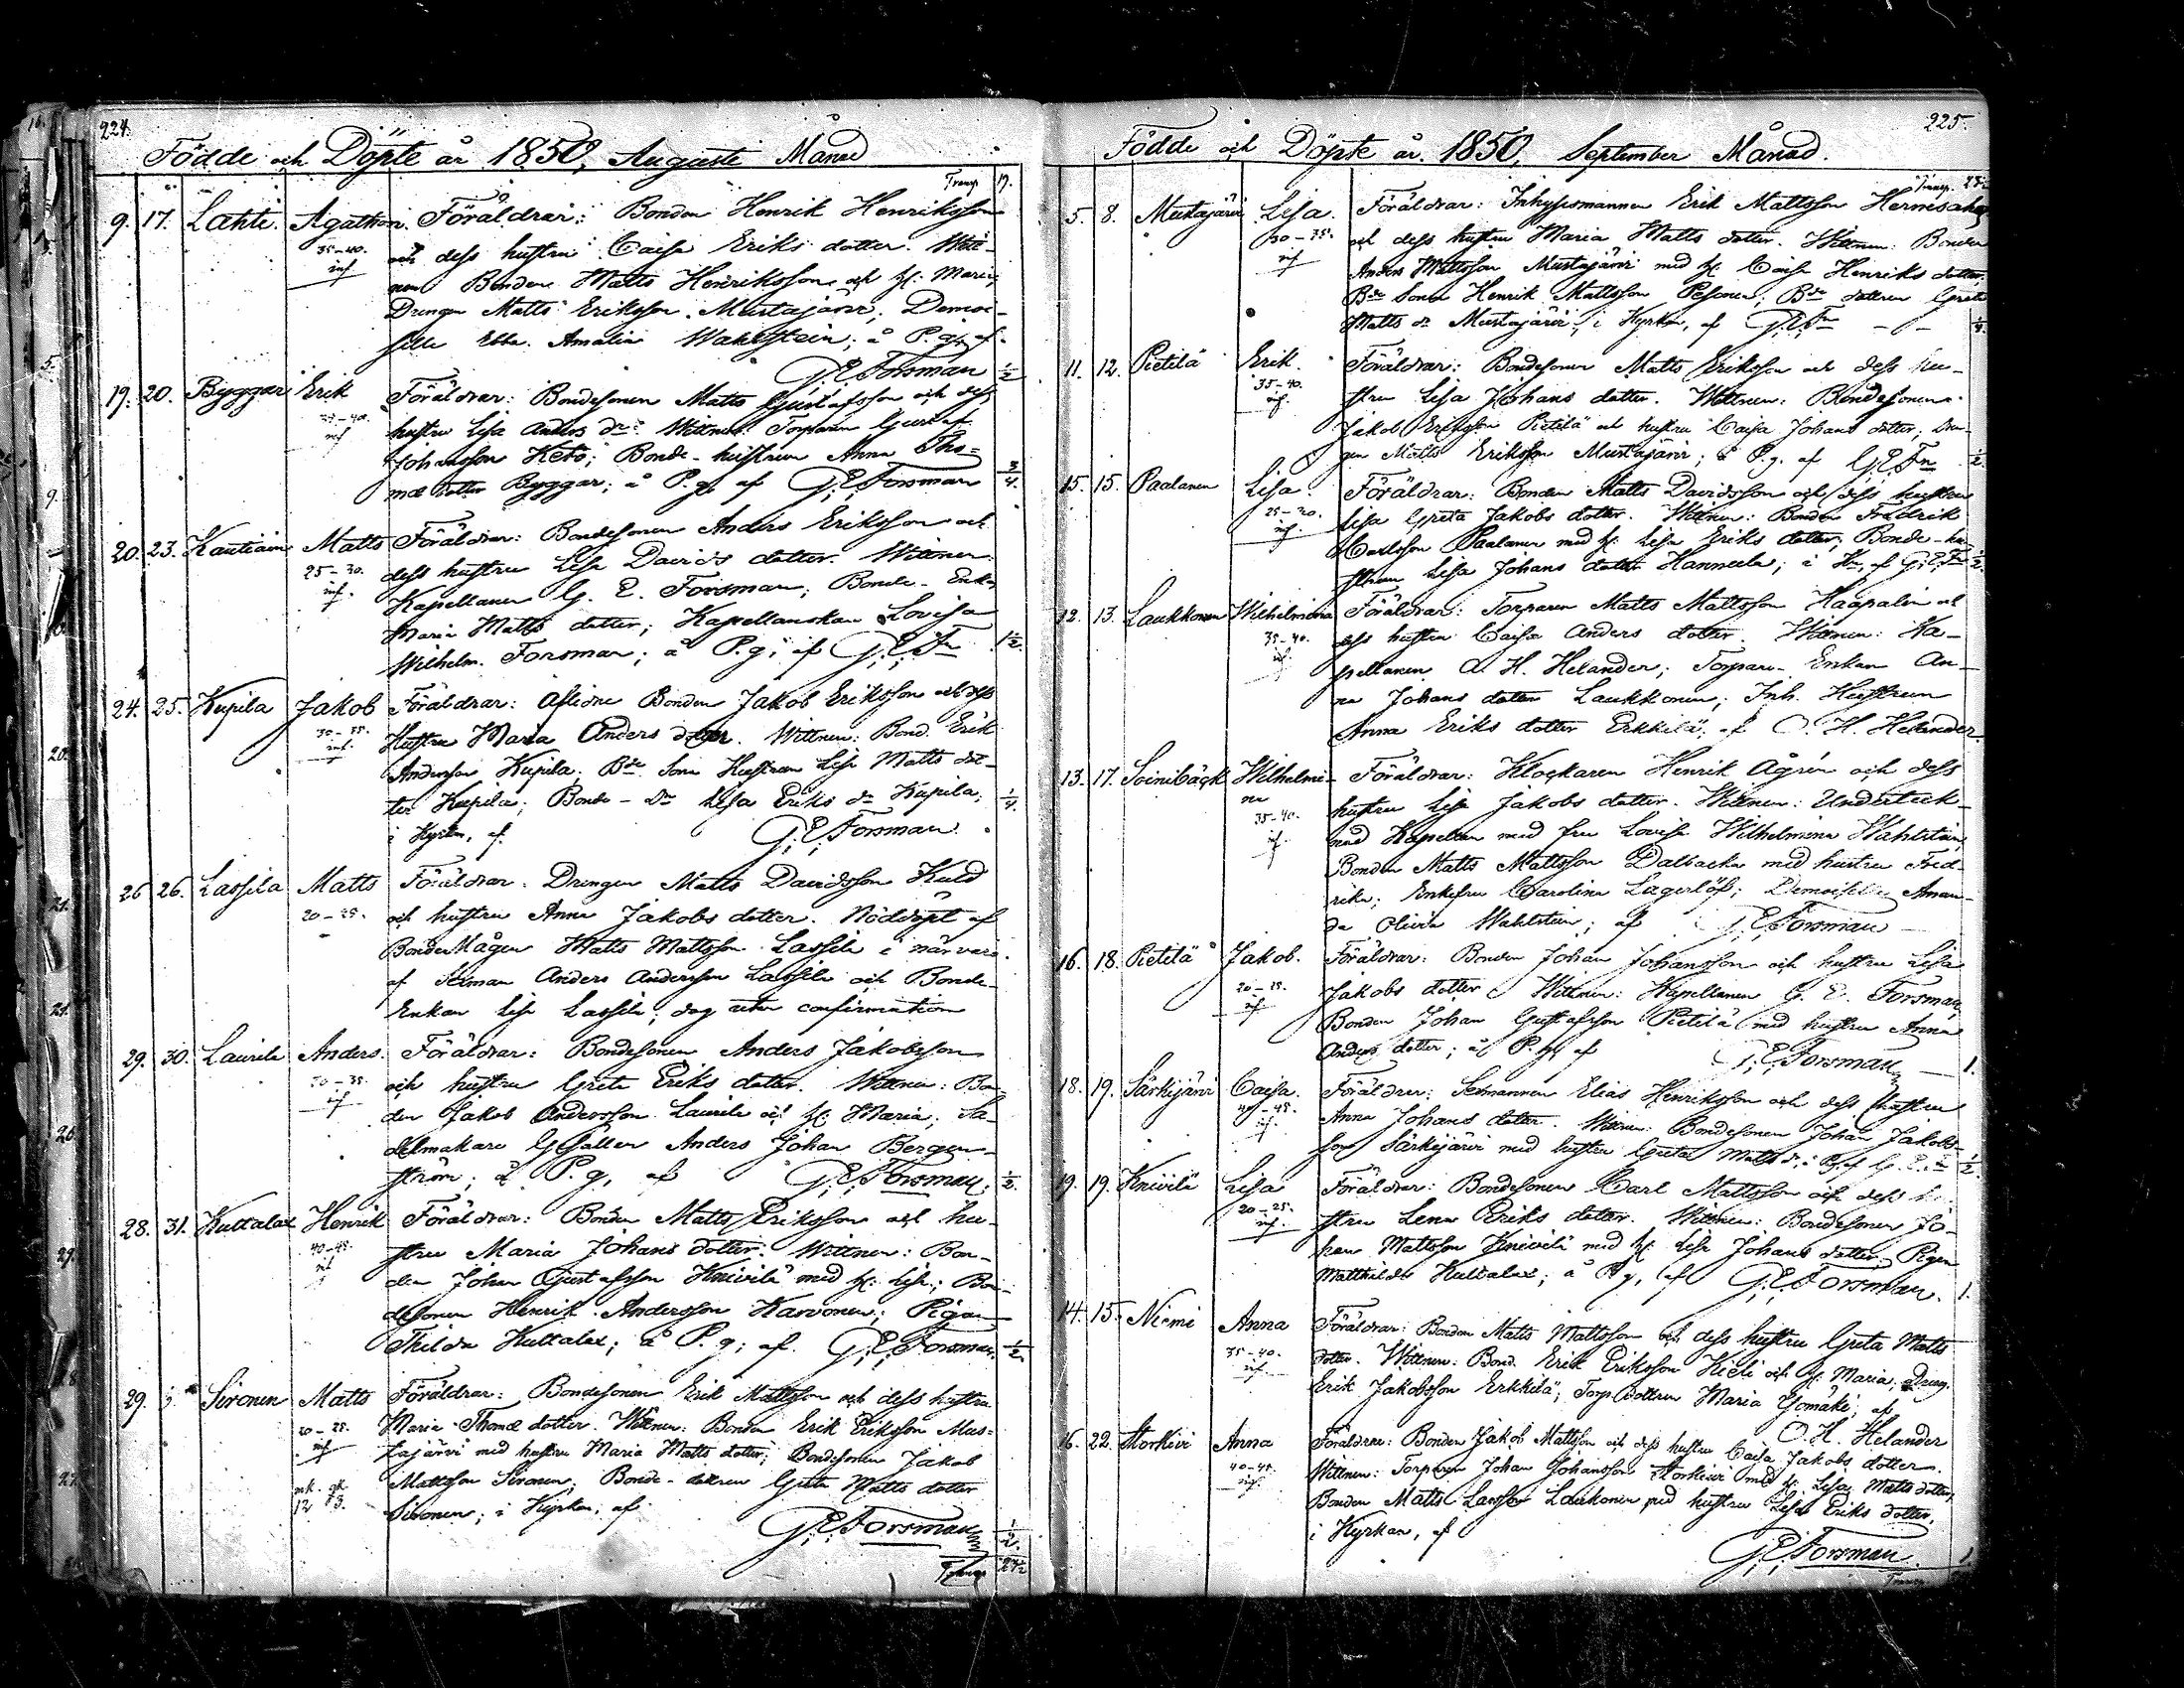 224.
Födde och Döpte år 1850, Augusti Månad
Transp. 19.
9. 17. Lahti. Agathon. Föräldrar: Bonden Henrik Henriksson
35–40. och dess hustru Caisa Eriks dotter. Witt-
inf. nen Bonden Matts Henriksson och h: Maria;
Drengen Matts Eriksson Mustajärvi; Demoi-
selle Ebba Amalia Wahlstein; å P. g. af
G. E. Forsman ½
19. 20. Byggar Erik Föräldrar: Bondesonen Matts Gustafsson och dess
hustru Lisa Anders dr. Wittnen: Torparen Gustaf
inf Johansson Keto; Bonde-hustrun Anna Tho-
mæ dotter Byggar; å P. g. af G. E. Forsman ¾.
20. 23. Matts Föräldrar: Bondesonen Anders Eriksson och
25–30. dess hustru Lisa Davids dotter. Wittnen
inf. Kapellanen G. E. Forsman; Bonde-Enkan
Maria Matts dotter; Kapellanskan Lovisa
Wilhelm. Forsman; å P. g; af G. E. Fn 1½.
24. 25. Kupila Jakob Föräldrar: Aflidne Bonden Jakob Eriksson och dess
30–35. Hustru Maria Anders dotter. Wittnen: Bond. Erik
inf. Andersson Kupila; Bde Sons Hustrun Lisa Matts dot-
ter Kupila; Bonde-dr Lisa Eriks dr Kupila; ¼.
i Kyrkan, af G. E. Forsman.
26 26. Lassila Matts Föräldrar: Drengen Matts Davidsson Kuld
20–25. och hustru Anna Jakobs dotter. Nöddöpt af
Bonde Mågen Matts Mattsson Lassila i närvaro
af Sexman Anders Andersson Lassila och Bonde-
Enkan Lisa Lassila; dog utan confirmation
29. 30. Laurila Anders. Föräldrar: Bondesonen Anders Jakobsson
30–35. och hustru Greta Eriks dotter. Wittnen: Bon-
inf den Jakob Andersson Laurila och h: Maria; Sa-
delmakare Gesällen Anders Johan Bergen-
ström; å P. g, af G. E. Forsman. ½.
28. 31. Kuttalax Henrik Föräldrar: Bonden Matts Eriksson och hu-
40–45. stru Maria Johans dotter. Wittnen: Bon-
inf den Johan Gustafsson Knivilä med h: Lisa; Bon-
desonen Henrik Andersson Karvonen; Pigan
Thilda Kuttalax; å P. g; af G. E. Forsman. ½.
29. Sironen Matts Föräldrar: Bondesonen Erik Mattsson och dess hustru
20–25. Maria Thomæ dotter. Wittnen: Bonden Erik Eriksson Mus-
inf tajärvi med hustru Maria Matts dotter; Bondesonen Jakob
mk. qk. Mattsson Sironen; Bonde-dottren Greta Matts dotter
12 13. Sironen; i Kyrkan, af
G. E. Forsman ½.
Transp.
225.
Födde och Döpte år 1850, September Månad.
Transp.
5. 8. Mustajärvi Lisa. Föräldrar: Inhysesmannen Erik Mattsson Hernesaho
30–35. och dess hustru Maria Matts dotter. Wittnen: Bonden
inf Anders Mattsson Mustajärvi med h: Caisa Henriks dotter;
Bde Sonen Henrik Mattsson Pesonen; Bde dottren Greta
Matts dr Mustajärvi, i Kyrkan, af G. E. Fn – – ¼.
11. 12. Pietilä Erik. Föräldrar: Bondesonen Matts Eriksson och dess hu-
35–40. stru Lisa Johans dotter. Wittnen: Bondesonen
inf. Jakob Eriksson Pietilä och hustru Caisa Johans dotter; Dren-
gen Matts Eriksson Mustajärvi; å P. g. af G. E. Fn ½.
15. 15. Paalanen Lisa. Föräldrar: Bonden Matts Davidsson och dess hustru
25–30. Lisa Greta Jakobs dotter. Wittnen: Bonden Fredrik
inf. Carlsson Paalanen med h: Lisa Eriks dotter; Bonde-hu-
strun Lisa Johans dotter Hannula; i Kn, af G. E. Fn ½.
12. 13. Laukkonen Wilhelmina Föräldrar: Torparen Matts Mattsson Haapalin och
35–40. dess hustru Caisa Anders dotter. Wittnen: Ka-
inf. pellanen O. H. Helander; Torpare-Enkan An-
na Johans dotter Laukkonen; Inh. Hustrun
Anna Eriks dotter Erkkilä; af O. H. Helander.
13. 17. Soinibäck Wilhelmi- Föräldrar: Klockaren Henrik Ågrén och dess
na hustru Lisa Jakobs dotter. Wittnen: Underteck-
35–40. nad Kapellan med fru Lovisa Wilhelmina Wahlstein;
inf. Bonden Matts Mattsson Dalbacka med hustru Fred-
rika; Enkefru Carolina Lagerlöf; Demoiselle Aman-
da Olivia Wahlstein; af G. E. Forsman
16. 18. Pietilä Jakob. Föräldrar: Bonden Johan Johansson och hustru Lisa
20–25. Jakobs dotter. Wittnen: Kapellanen G. E. Forsman,
inf Bonden Johan Gustafsson Pietilä med hustru Anna
Anders dotter; å P. g. af G. E. Forsman 1.
18. 19. Särkijärvi Caisa. Föräldrar: Sexmannen Elias Henriksson och dess hustru
40–45. Anna Johans dotter. Wittnen: Bondesonen Johan Jakobs-
inf. son Särkijärvi med hustru Greta Matts dr. å Pg. af G. E. Fn ½.
19. 19. Knivilä Lisa Föräldrar: Bondesonen Carl Mattsson och dess hu-
20–25. stru Lena Eriks dotter. Wittnen: Bondesonen Jo-
inf. han Mattsson Knivilä med h: Lisa Johans dotter; Pigan
Matthilda Kuttalax; å P. g, af G. E. Forsman. 1.
14. 15. Niemi Anna Föräldrar: Bonden Matts Mattsson och dess hustru Greta Matts
35–40. dotter. Wittnen: Bond. Erik Eriksson Kieli och h: Maria; Dreng.
inf. Erik Jakobsson Erkkilä; Torp. dottren Maria Ojomäki; af
O. H. Helander
16. 22. Storkivi Anna Föräldrar: Bonden Jakob Mattsson och dess hustru Caisa Jakobs dotter.
40–45. Wittnen: Torparen Johan Johansson Storkivi med h: Lisa Matts dotter;
inf. Bonden Matts Larsson Laukonen med hustru Lisa Eriks dotter,
i Kyrkan, af
G. E. Forsman. 1
Transp.